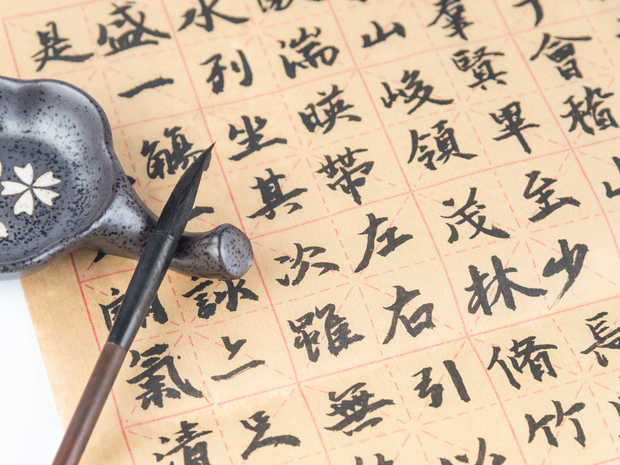 會稽
羣賢畢至少長
山峻領茂林脩竹
湍暎帶左右引以
水列坐其次雖無
盛一觴一詠亦足
是
氣清